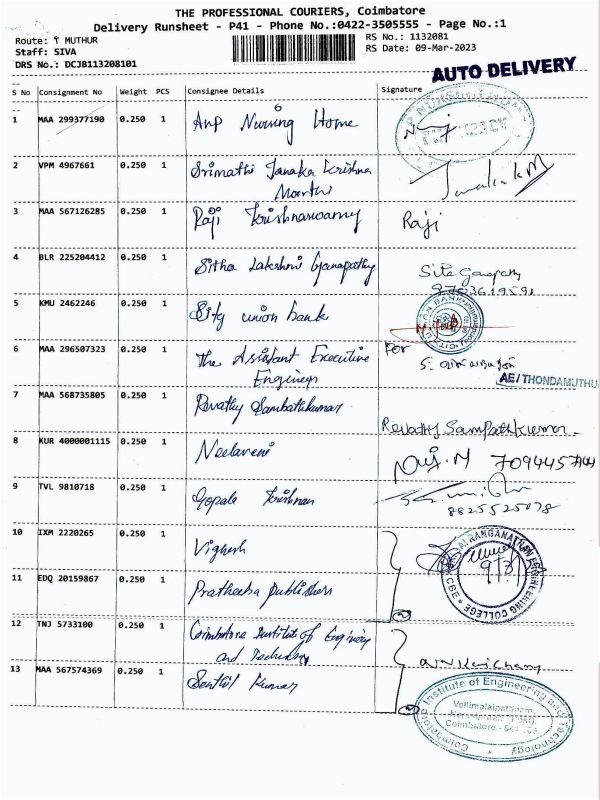 THE PROFESSIONAL COURIERS, Coimbatore
Delivery Runsheet - P41 - Phone No.:0422-3505555 - Page No.:1
Route: ۴ MUTHUR
Staff: SIVA
DRS No.: DCJB113208101
RS No.: 1132081
RS Date: 09-Mar-2023
AUTO DELIVERY
S No Consignment No Weight PCS Consignee Details Signature
1 MAA 299377190 0.250 1 Anp Nursing Home
2 VPM 4967661 0.250 1 Srimathi Janaka Krishna
Moorthi
3 MAA 567126285 0.250 1 Raji Krishnaswamy Raji
4 BLR 225204412 0.250 1 Sitha Lakshmi Ganapathy Sita Ganapathy
5 KMU 2462246 0.250 1 City union bank
6 MAA 296507323 0.250 1 The Assistant Executive For
Engineer
AE/THONDAMUTHU
7 MAA 568735805 0.250 1 Revathy Sambathkumar Revathy Sampathkumar
8 KUR 4000001115 0.250 1 Neelaveni
9 TVL 9810718 0.250 1 Gopala Krishnan
8825525078
10 IXM 2220265 0.250 1 Vighesh
RANGANATHAN ENGINEERING COLLEGE
CBE
11 EDQ 20159867 0.250 1 Pratheeba publishers
12 TNJ 5733100 0.250 1 Coimbatore Institute of Enginery
and Technology
13 MAA 567574369 0.250 1 Senthil Kumar
Coimbatore Institute of Engineering and Technology
Vellimalaipattinam,
Coimbatore -